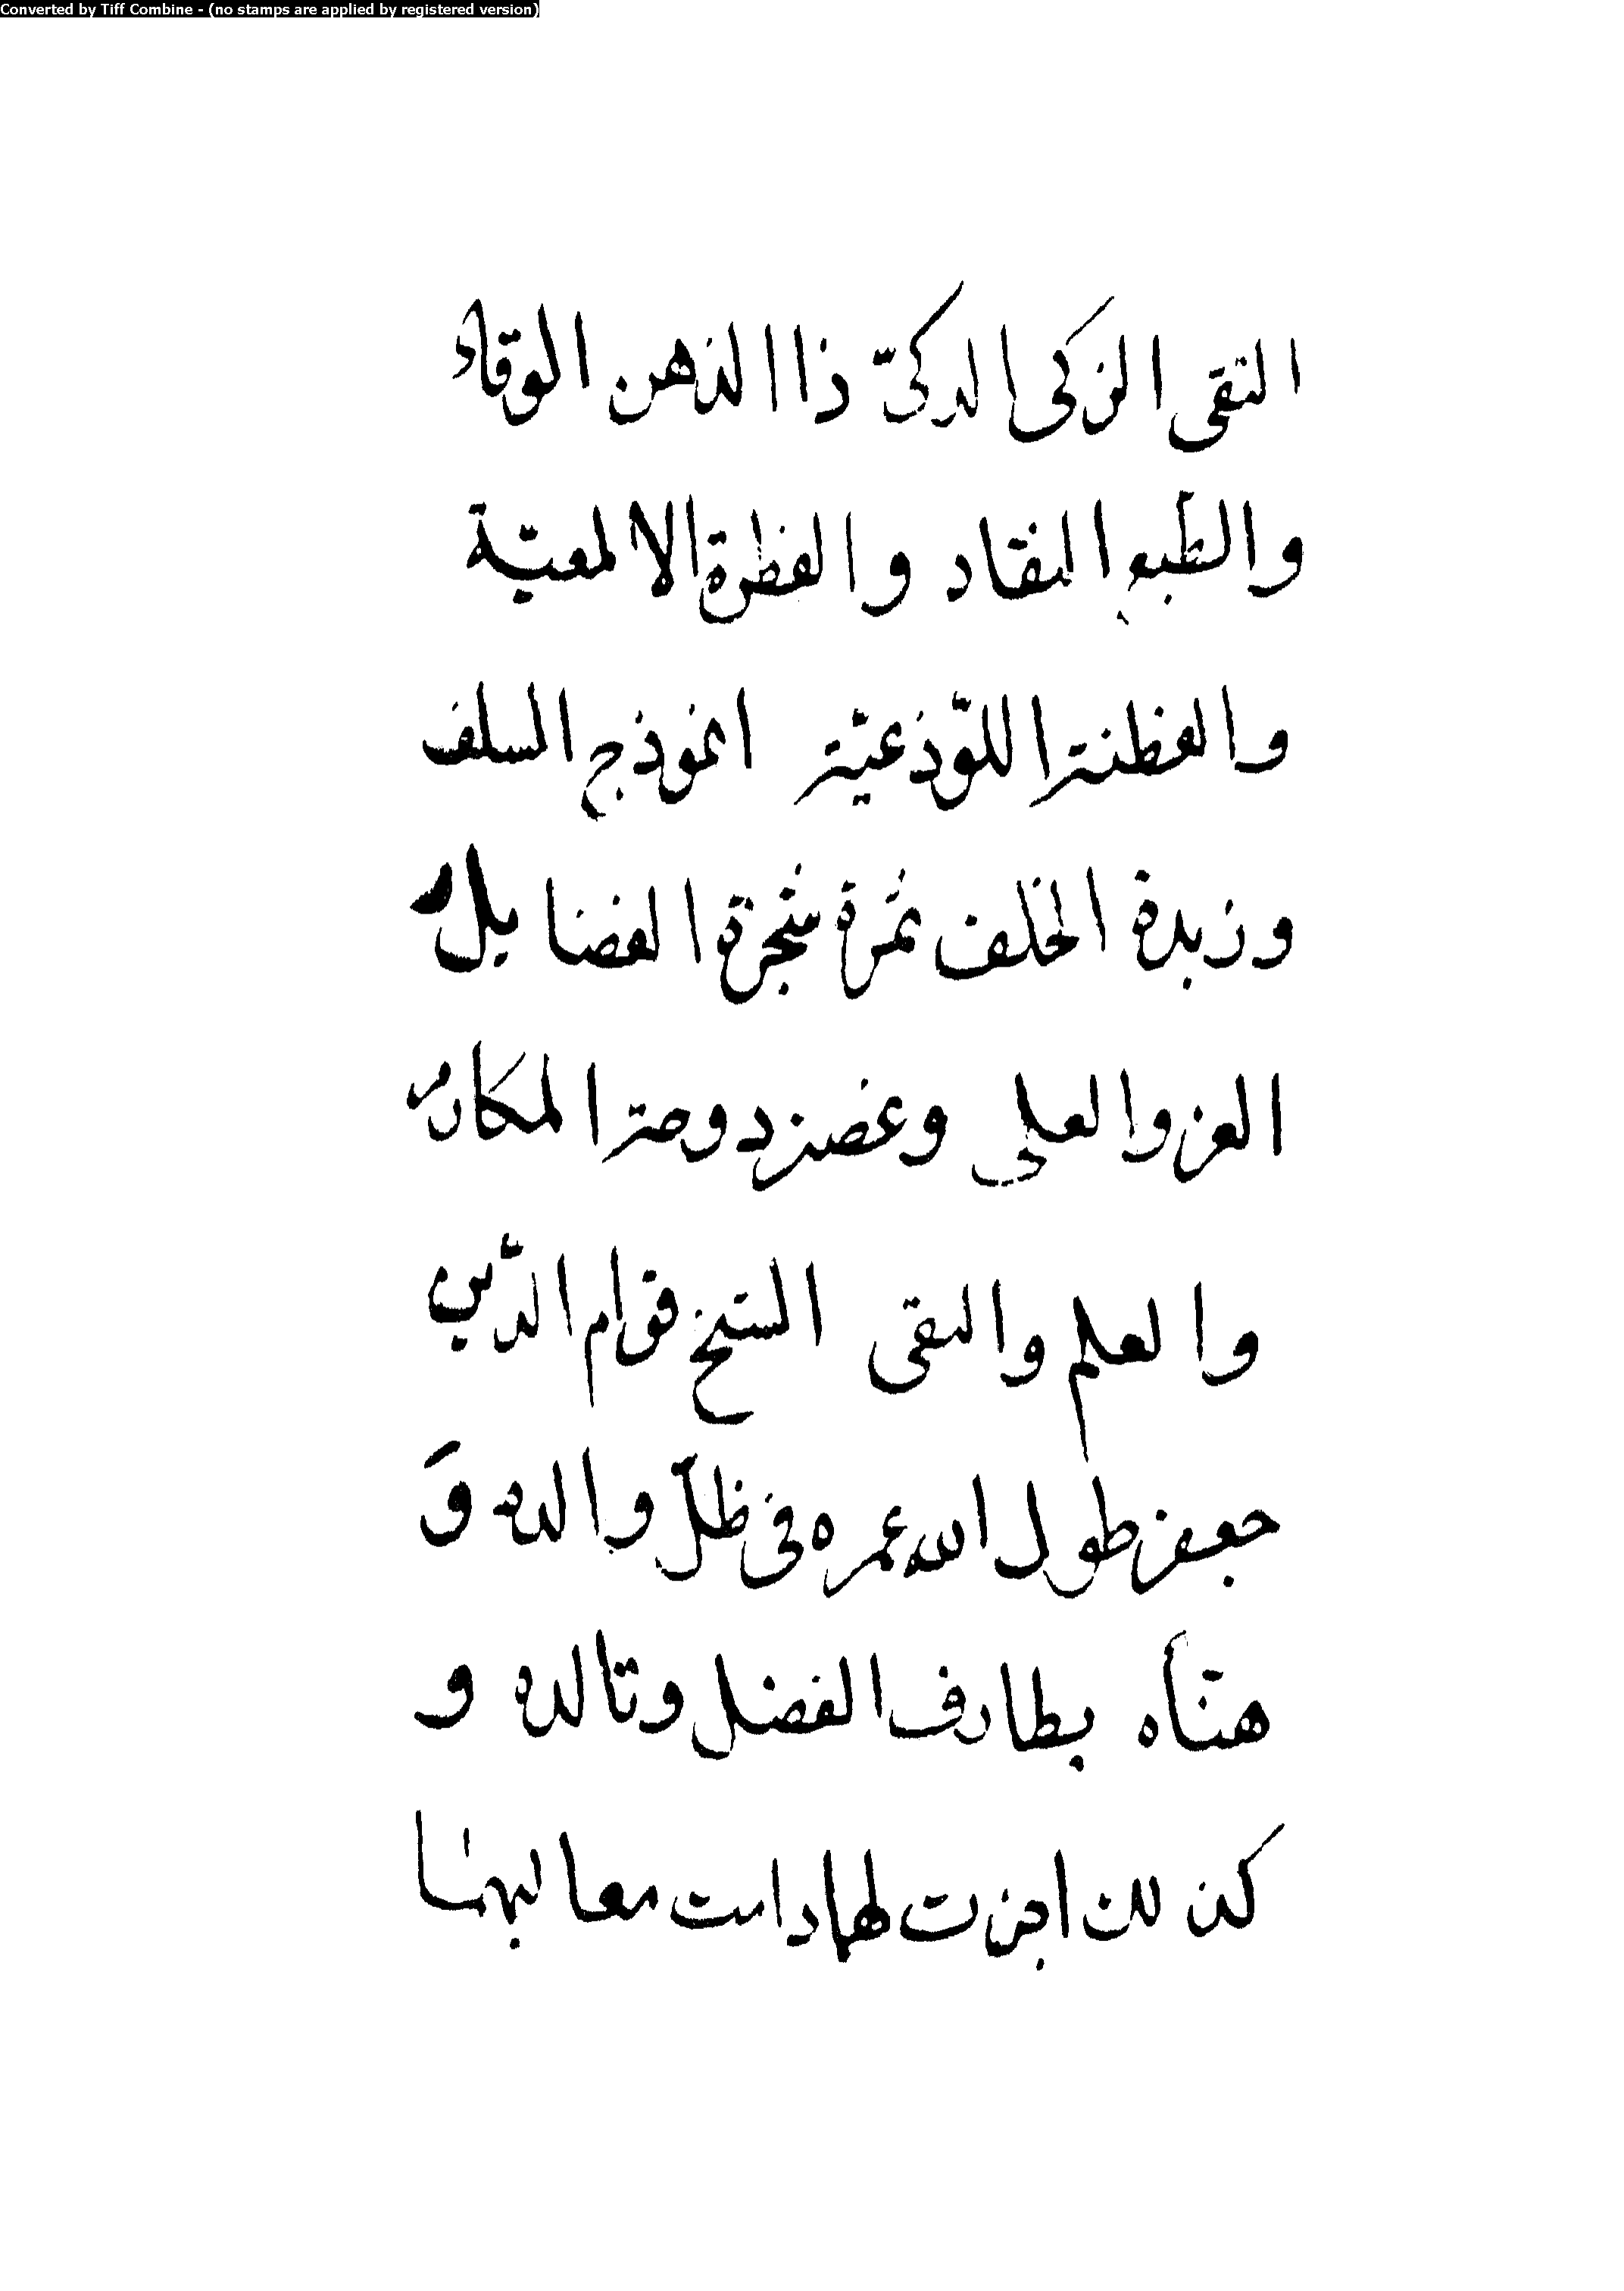 Converted by Tiff Combine - (no stamps are applied by registered version)
التقى الزكى الذكىّ ذا الذهن الوقاد
والطّبع النقاد والفطرة الالمعيّة
والفطنة اللّوذعيّة انموذج السلف
وزبدة الخلف ثمرة شجرة الفضايل و
العز والعلى وغصن دوحة المكارم
والعلم والتقى الشيخ قوام الدّين
جعفر طول الله عمره فى ظلّ والده وَ
هنّأه بطارف الفضل وتالده و
كذلك اجزت لهما دامت معاليهما